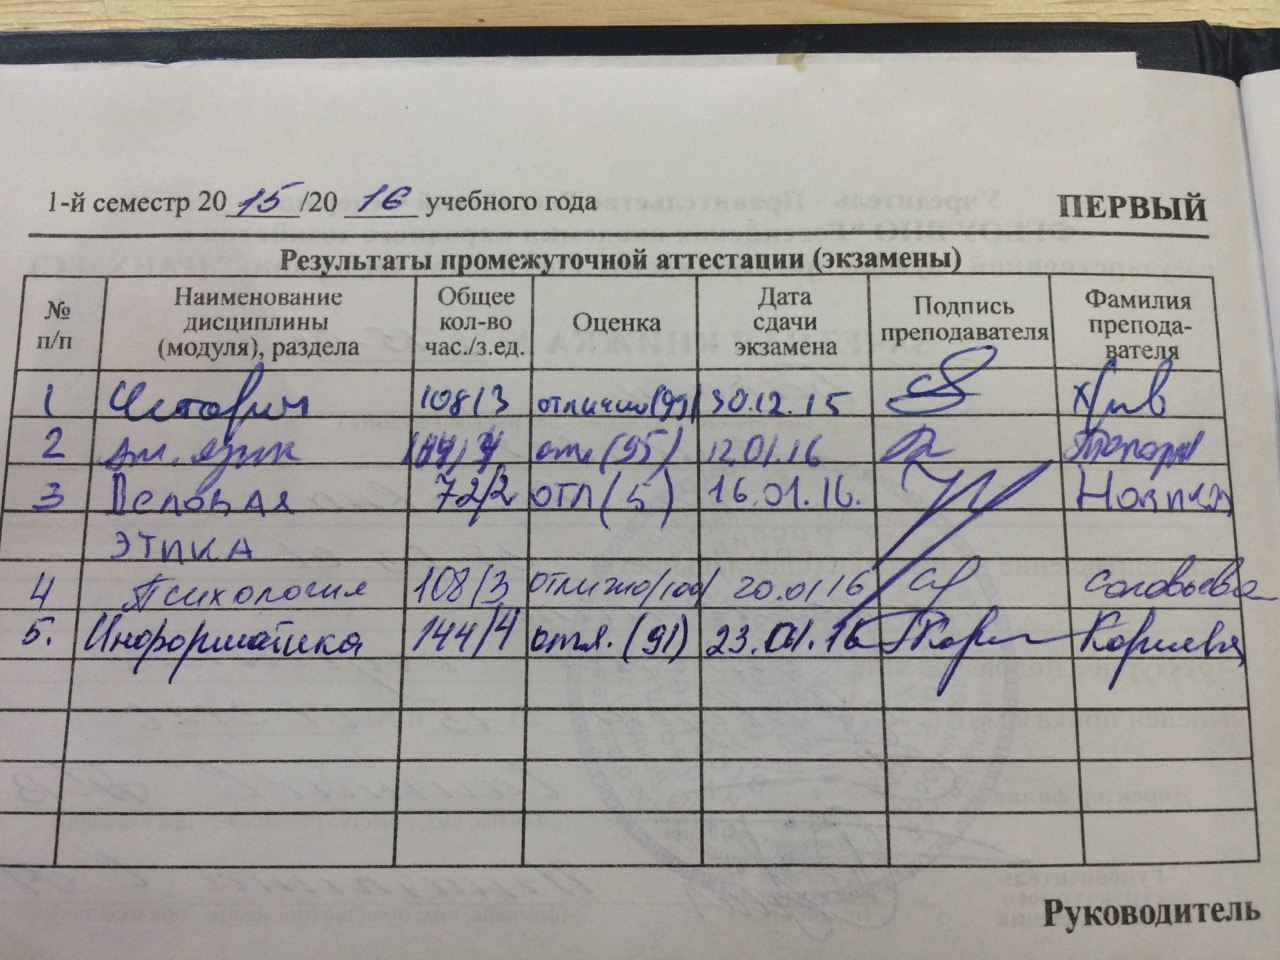 1-й семестр 20 15 /20 16 учебного года
ПЕРВЫЙ
Результаты промежуточной аттестации (экзамены)
№ п/п Наименование дисциплины (модуля), раздела Общее кол-во час./з.ед. Оценка Дата сдачи экзамена Подпись преподавателя Фамилия препода-вателя
1 История 108/3 отлично (99) 30.12.15
2 Ин. язык 144/4 отл (95) 12.01.16
3 Деловая 72/2 отл (5) 16.01.16.
этика
4 Психология 108/3 отлично/100/ 20.01.16 Соловьева
5. Информатика 144/4 отл. (91) 23.01.16 Корнева
Руководитель